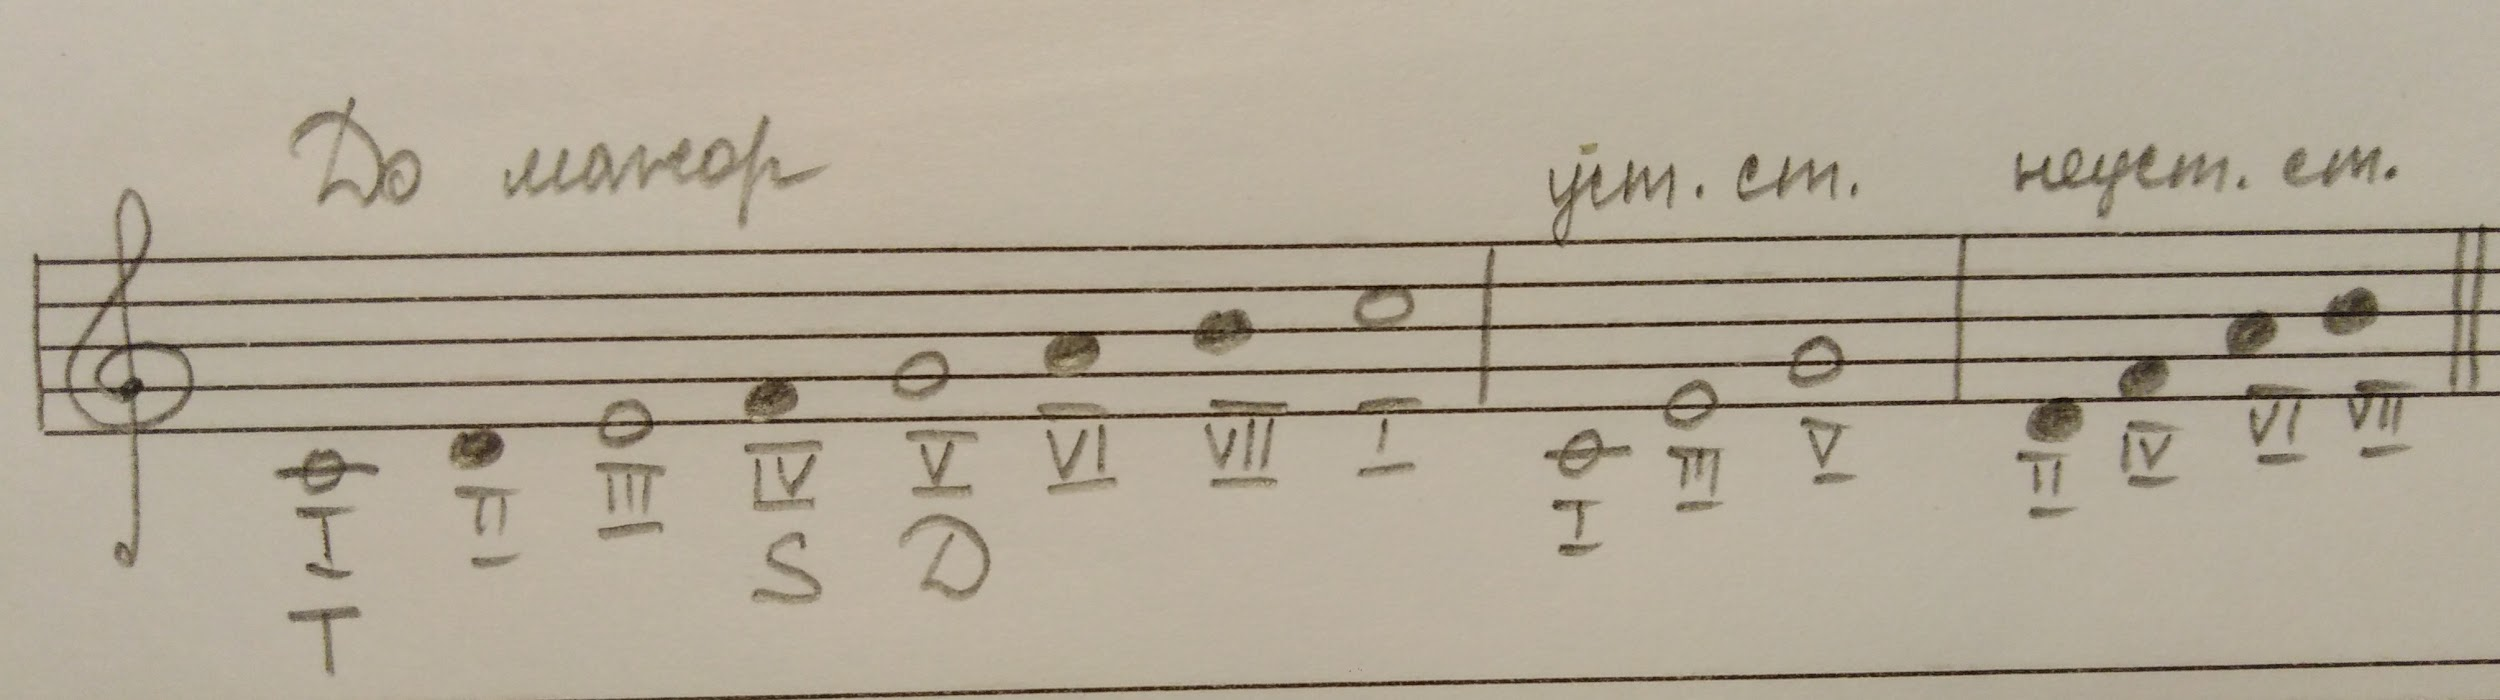 До мажор уст. ст. неуст. ст.
I II III IV V VI VII I I III V II IV VI VII
T S D